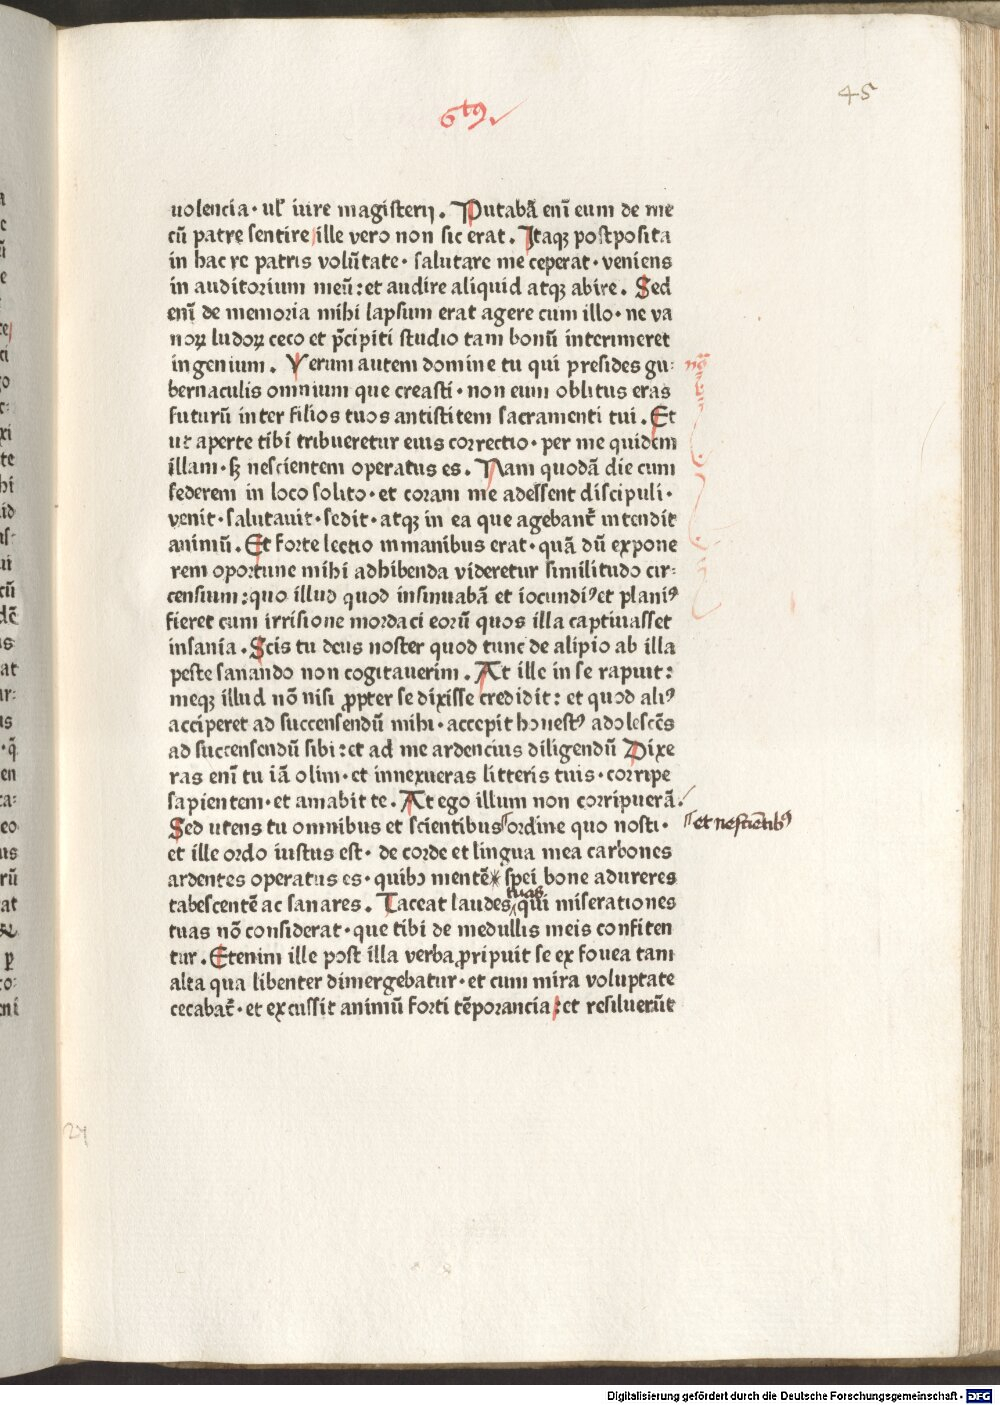 45
6tꝰ
uolencia · ul̕ iure magisterij . Putabā enī eum de me
cū patre sentire ille vero non sic erat . Itaqꝫ postposita
in hac re patris volūtate · salutare me ceperat · veniens
in auditorium meū : et audire aliquid atqꝫ abire . Sed
enī de memoria mihi lapsum erat agere cum illo · ne va
noꝝ ludoꝝ ceco et p̄cipiti studio tam bonū interimeret
ingenium . Verum autem domine tu qui presides gu:
bernaculis omnium que creasti · non eum oblitus eras
futurū inter filios tuos antistitem sacramenti tui . Et
ut aperte tibi tribueretur eius correctio · per me quidem
illam · sꝫ nescientem operatus es . Nam quodā die cum
sederem in loco solito · et coram me adessent discipuli ·
venit · salutauit · sedit · atqꝫ in ea que agebant̄ intendit
animū . Et forte lectio in manibus erat · quā dū expone
rem oportune mihi adhibenda videretur similitudo cir:
censium : quo illud quod insinuabā et iocundiꝰ et planiꝰ
fieret cum irrisione mordaci eorū quos illa captiuasset
insania . Scis tu deus noster quod tunc de alipio ab illa
peste sanando non cogitauerim . At ille in se rapuit :
meqꝫ illud nō nisi ꝓpter se dixisse credidit : et quod aliꝰ
acciperet ad succensendū mihi · accepit honestꝰ adolescēs
ad succensendū sibi : et ad me ardencius diligendū Dixe
ras enī tu iā olim · et innexueras litteris tuis · corripe
sapientem · et amabit te . At ego illum non corripuerā .
Sed utens tu omnibus et scientibus ordine quo nosti · et nescientibꝰ
et ille ordo iustus est · de corde et lingua mea carbones
ardentes operatus es · quibꝫ mentē spei bone adureres
tabescentē ac sanares . Taceat laudes tuas qui miserationes
tuas nō considerat · que tibi de medullis meis confiten
tur . Etenim ille post illa verba ꝓripuit se ex fouea tam
alta qua libenter dimergebatur · et cum mira voluptate
cecabat̄ · et excussit animū forti tēporancia : et resiluerūt
Digitalisierung gefördert durch die Deutsche Forschungsgemeinschaft - DFG